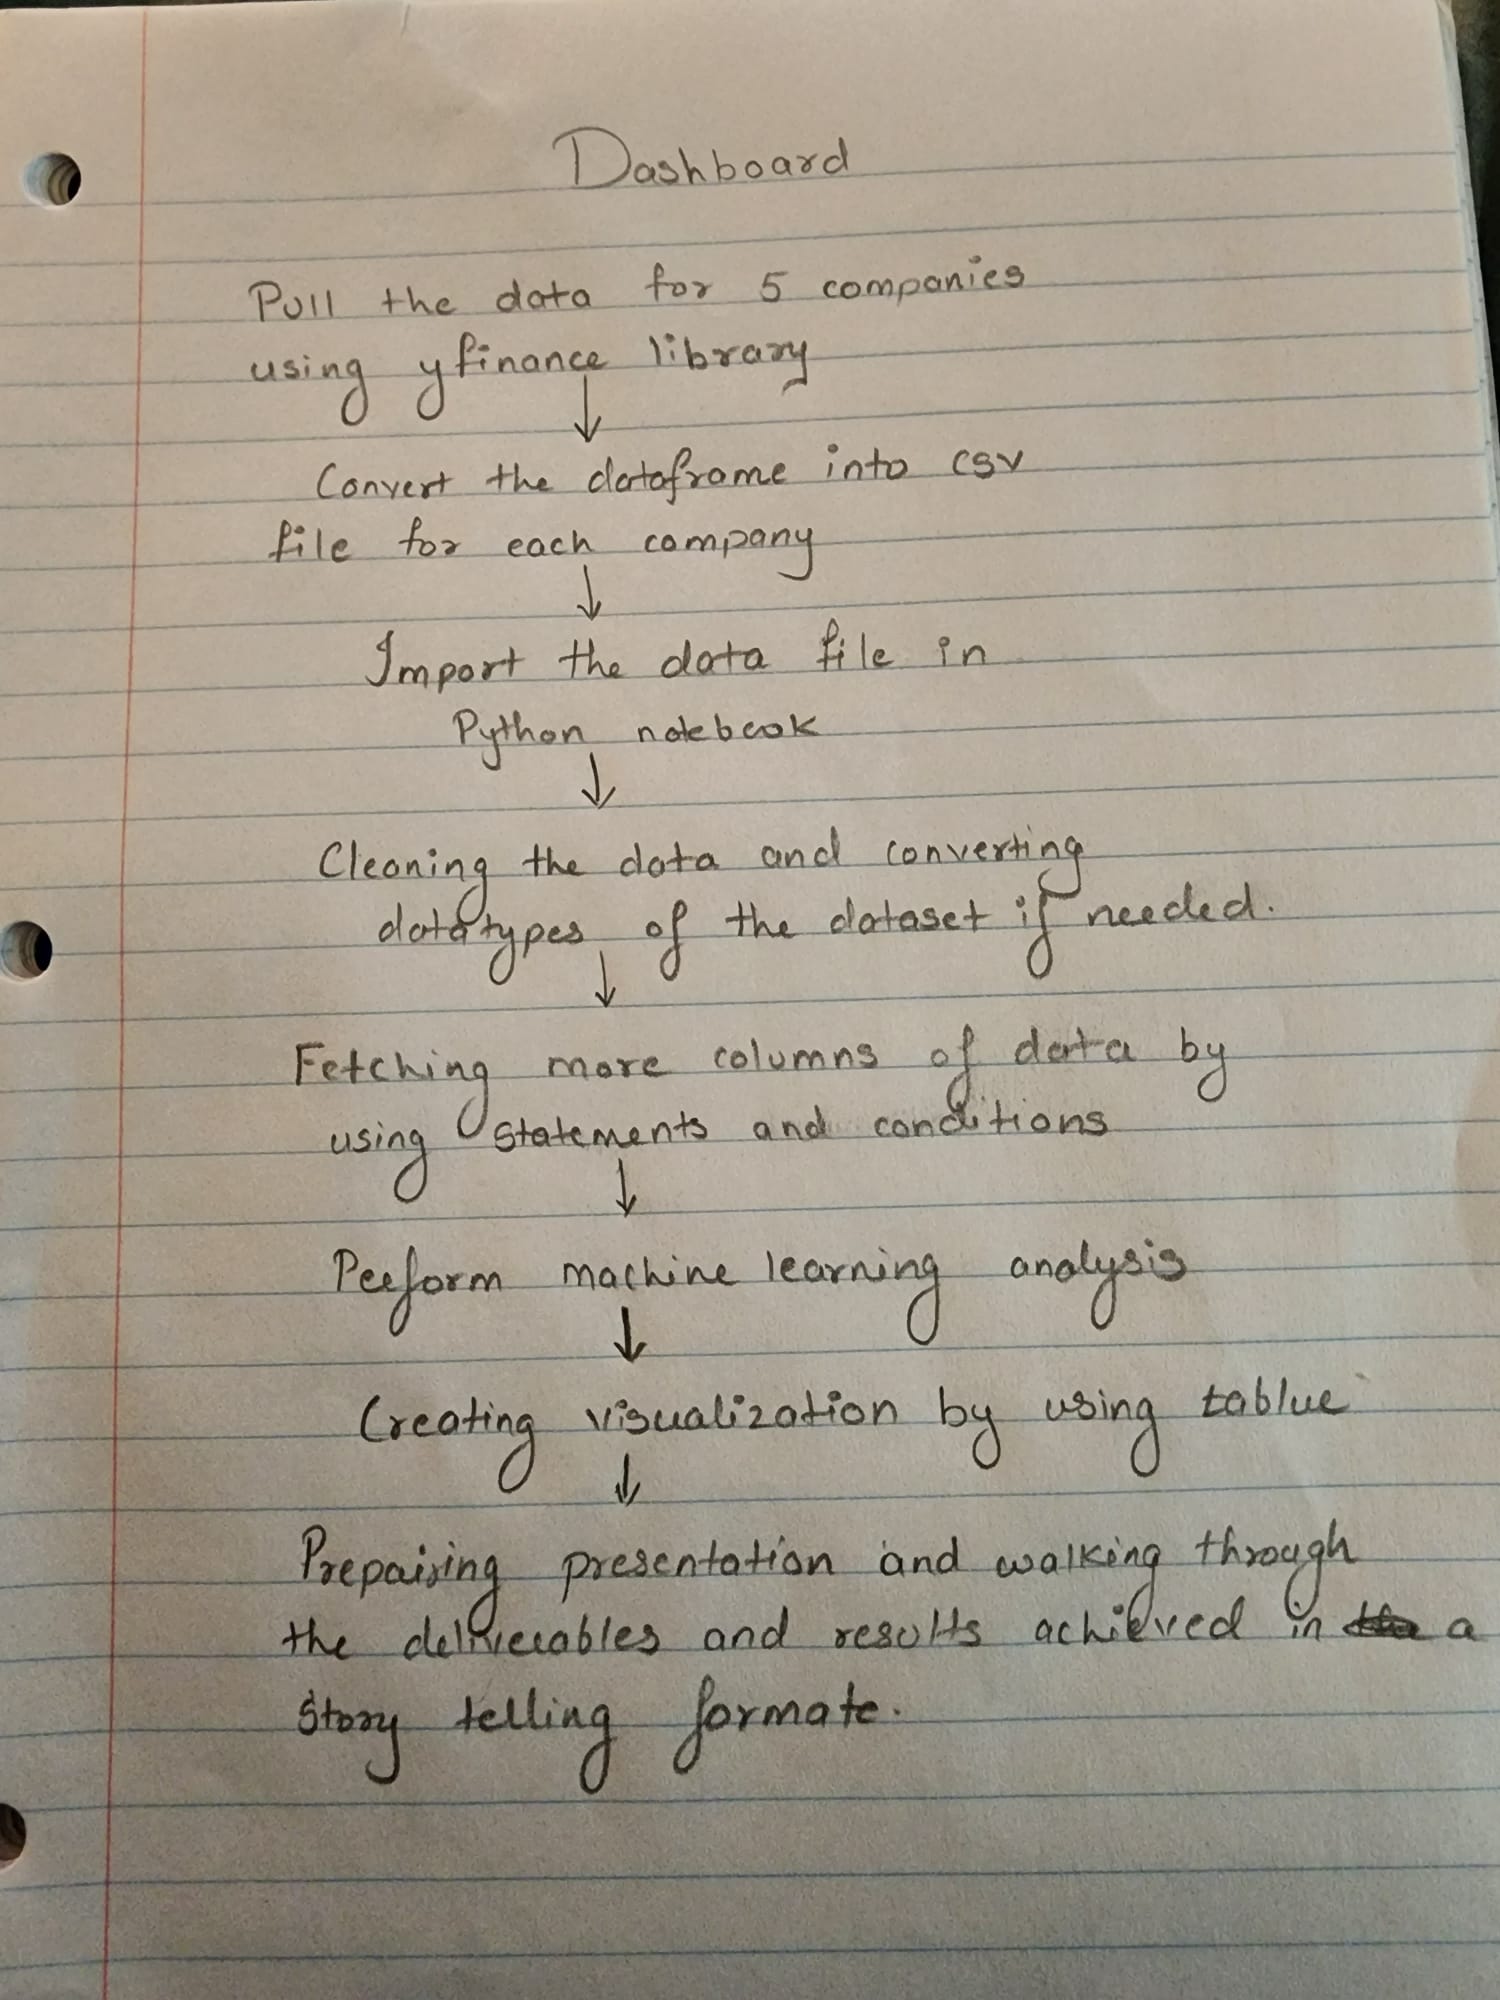 Dashboard
Pull the data for 5 companies
using yfinance library
↓
Convert the dataframe into csv
file for each company
↓
Import the data file in
Python notebook
↓
Cleaning the data and converting
datatypes of the dataset if needed.
↓
Fetching more columns of data by
using statements and conditions
↓
Perform machine learning analysis
↓
Creating visualization by using tablue
↓
Prepairing presentation and walking through
the deliverables and results achieved in a
story telling formate.